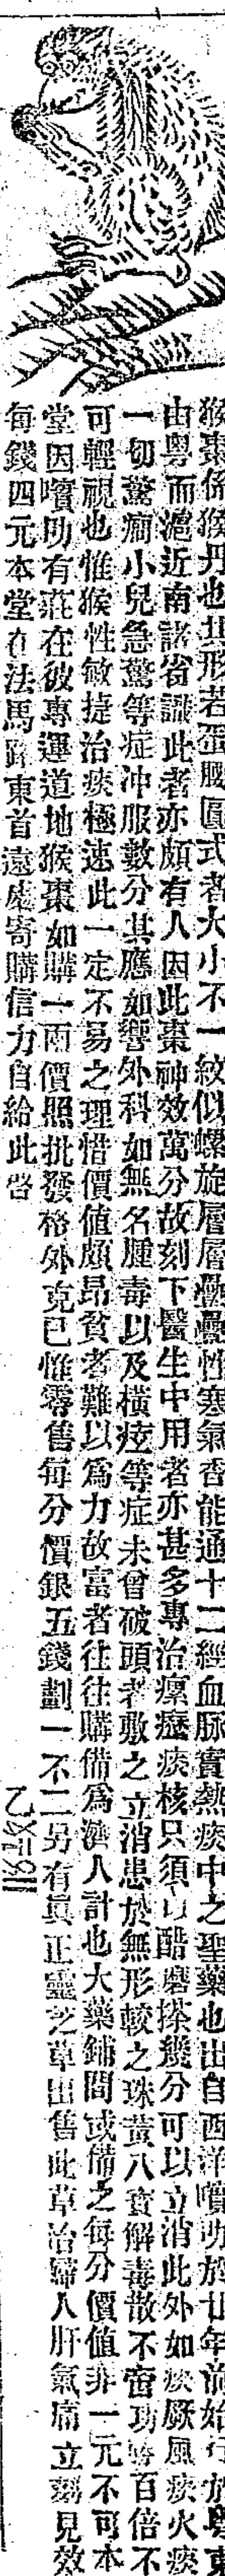 猴棗係猴丹也其形若蛋腰圓式者大小不一紋似螺旋層層疊疊性寒氣香能通十二經血脉實熱痰中之聖藥也出自西洋嘪叻於廿年前始行於粵東
由粵而滬近南諸省識此者亦頗有人因此棗神效萬分故刻下醫生中用者亦甚多專治瘰癧痰核只須以醋磨搽幾分可以立消此外如痰厥風痰火痰
一切驚癎小兒急驚等症冲服數分其應如響外科如無名腫毒以及橫痃等症未曾破頭者敷之立消患於無形較之珠黃八寶解毒散不啻功勝百倍不
可輕視也惟猴性敏捷治痰極速此一定不易之理惜價値頗昂貧者難以爲力故富者往往購備爲濟人計也大藥鋪間或備之每分價値非一元不可本
堂因嘪叻有莊在彼專運道地猴棗如購一兩價照批發格外克已惟零售每分價銀五錢劃一不二另有眞正靈芝草出售此草治婦人肝氣痛立刻見效
每錢四元本堂在法馬路東首遠處寄購信力自給此啓